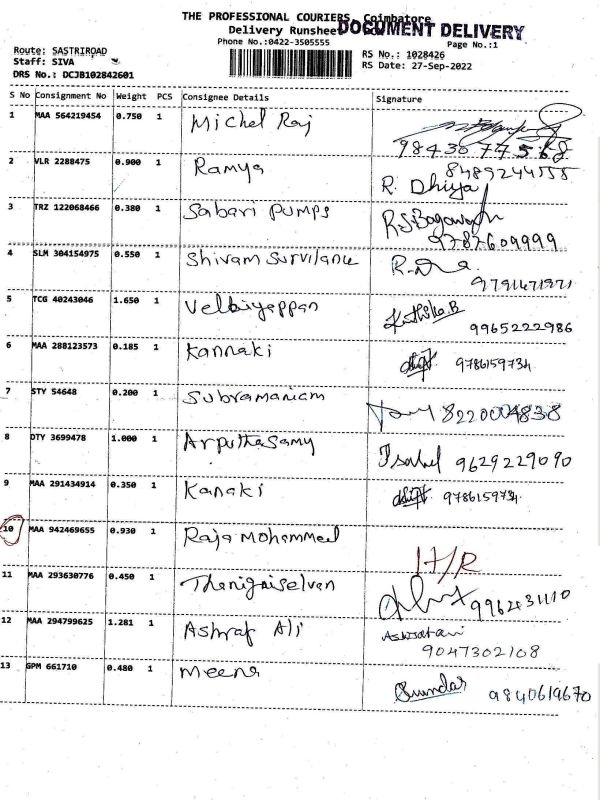 THE PROFESSIONAL COURIERS, Coimbatore
Delivery Runsheet
DOCUMENT DELIVERY
Phone No.:0422-3505555
Page No.:1
Route: SASTRIROAD
RS No.: 1028426
Staff: SIVA
RS Date: 27-Sep-2022
DRS No.: DCJB102842601
S No Consignment No Weight PCS Consignee Details Signature
1 MAA 564219454 0.750 1 Michel Raj
2 VLR 2288475 0.900 1 Ramya 8489244555
R. Dhiya
3 TRZ 122068466 0.380 1 Sabari Pumps
9787609999
4 SLM 304154975 0.550 1 Shivam Survilance
9791471971
5 TCG 40243046 1.650 1 Velbiyappan Kuthika.B
9965222986
6 MAA 288123573 0.185 1 Kannaki 9786159734
7 STY 54648 0.200 1 Subramaniam 8220004838
8 DTY 3699478 1.000 1 Arputhasamy Isabel 9629229090
9 MAA 291434914 0.350 1 Kanaki 9786159734
10 MAA 942469655 0.930 1 Raja Mohammed
11 MAA 293630776 0.450 1 Thanigaiselvan 9962431110
12 MAA 294799625 1.281 1 Ashraf Ali
9047302108
13 GPM 661710 0.480 1 Meena Sundar 9840619670